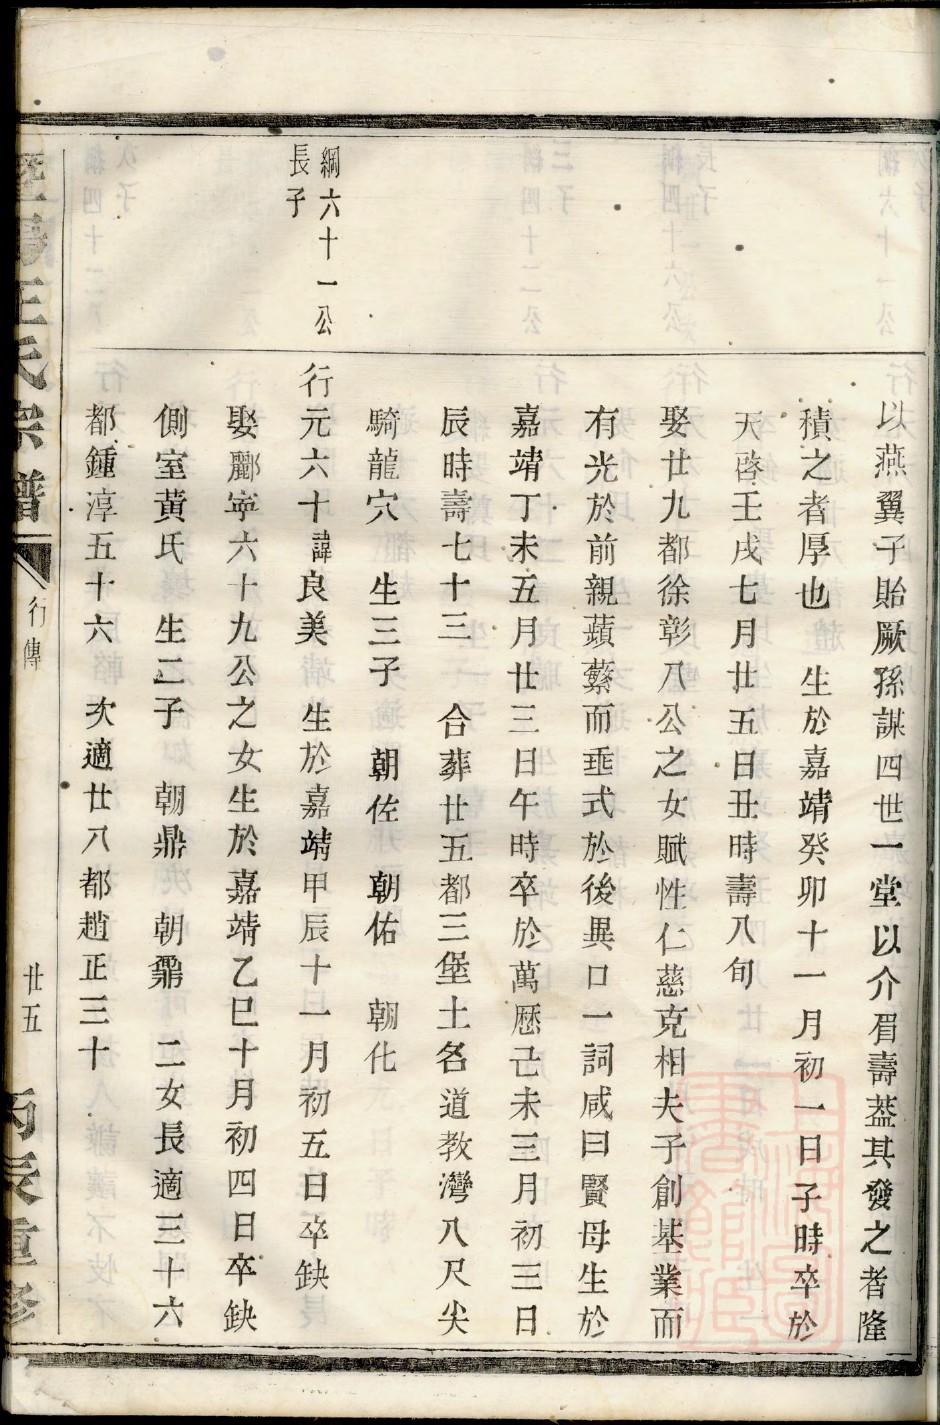 以燕翼子貽厥孫謀四世一堂以介眉壽葢其發之者隆
積之者厚也 生於嘉靖癸卯十一月初一日子時卒於
天啓壬戌七月廿五日丑時壽八旬
娶廿九都徐彰八公之女賦性仁慈克相夫子創基業而
有光於前親蘋蘩而垂式於後異口一詞咸曰賢母生於
嘉靖丁未五月廿三日午時卒於萬歷己未三月初三日
辰時壽七十三 合葬廿五都三堡土名道教灣八尺尖
騎龍穴 生三子 朝佐 朝佑 朝化
綱六十一公
長子
行元六十諱良美 生於嘉靖甲辰十一月初五日卒缺
娶酈寜六十九公之女生於嘉靖乙巳十月初四日卒缺
側室黄氏 生二子 朝鼎 朝鼐 二女長適三十六
都鍾淳五十六 次適廿八都趙正三十
暨陽王氏宗譜
行傳
廿五
丙辰重修